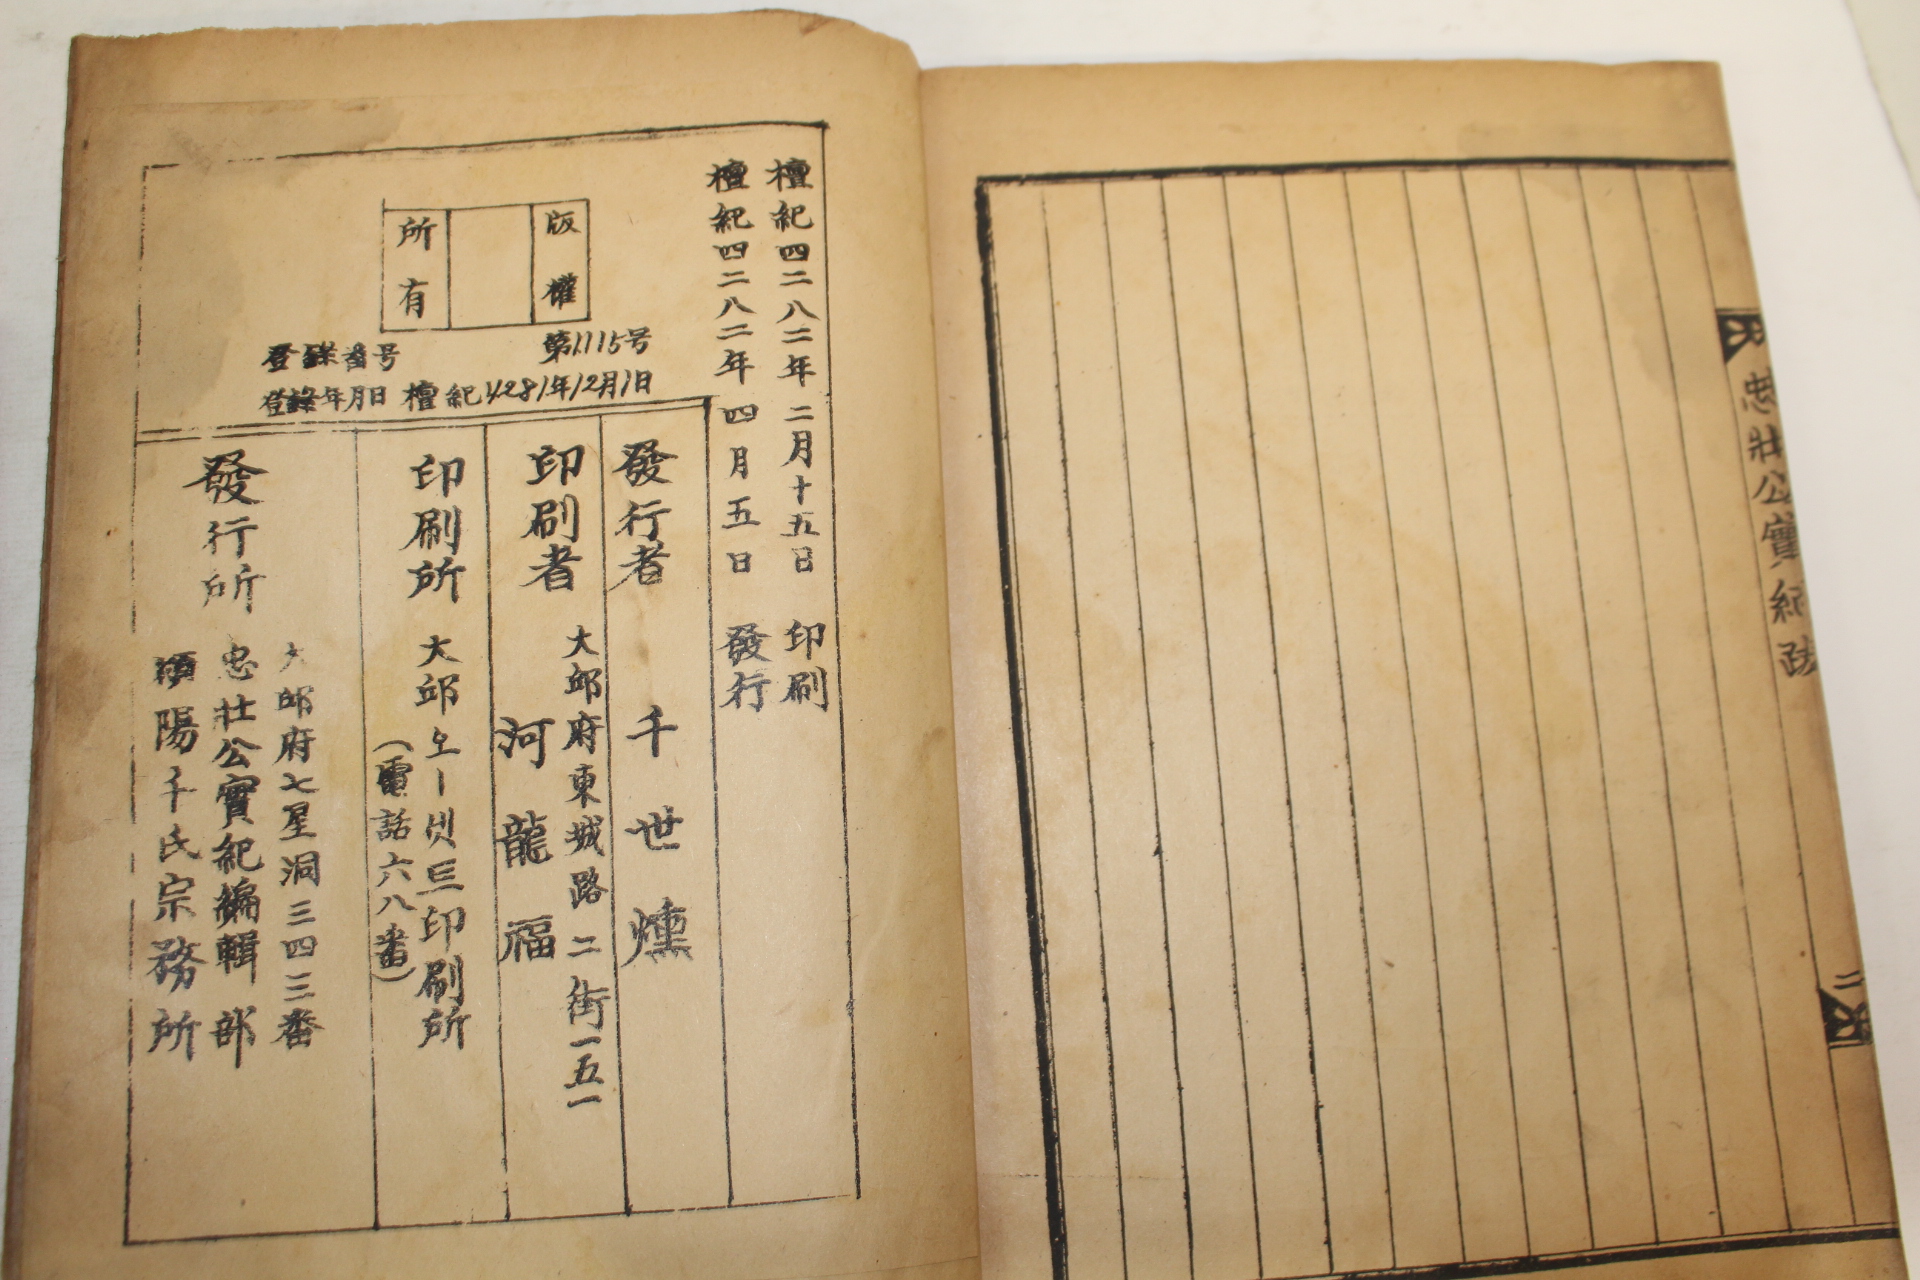 忠壯公實紀跋
二
檀紀四二八二年 二月十五日 印刷
檀紀四二八二年 四月五日 發行
版權
所有
登錄番号 第1115号
登錄年月日 檀紀4281年12月1日
發行者 千世燻
印刷者 大邱府東城路二街一五一
河龍福
印刷所 大邱오ー벳트印刷所
(電話六八番)
發行所 大邱府七星洞三四三番
忠壯公實紀編輯部
潁陽千氏宗務所